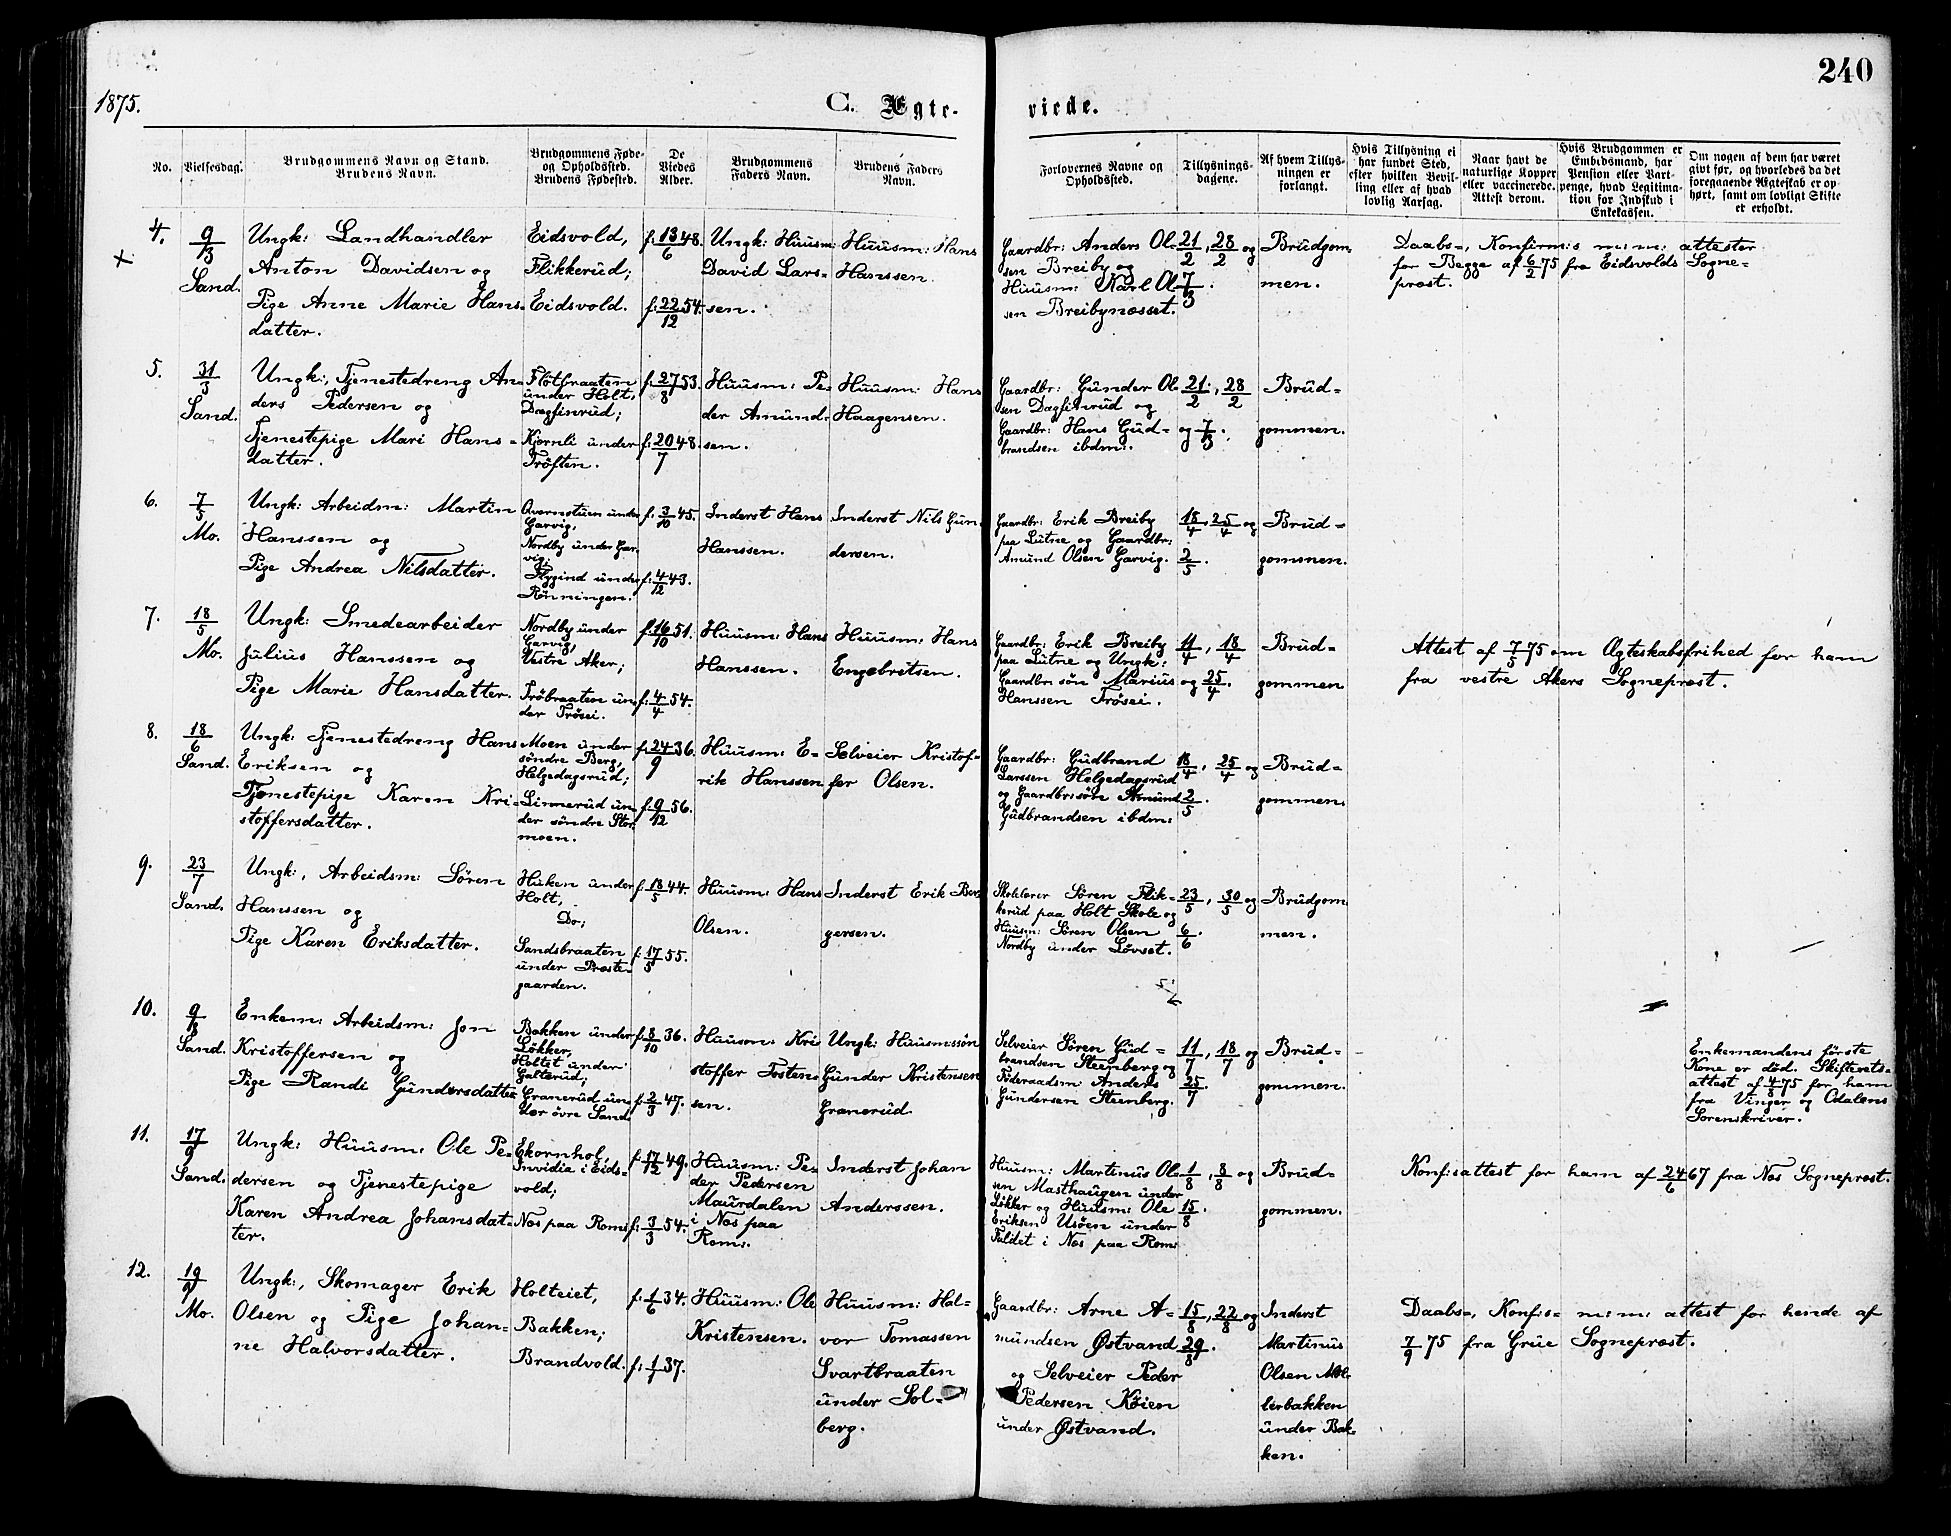 240
1875.
C. Ægte-
viede.
No.
Vielsesdag.
Brudgommens Navn og Stand.
Brudens Navn.
Brudgommens Føde-
og Opholdssted.
Brudens Fødested.
De
Viedes
Alder.
Brudgommens
Faders Navn.
Brudens Faders
Navn.
Forlovernes Navne og
Opholdssted.
Tillysnings-
dagene.
Af hvem Tillys-
ningen er
forlangt.
Hvis Tillysning ei
har fundet Sted,
efter hvilken Bevil-
ling eller af hvad
lovlig Aarsag.
Naar havt de
naturlige Kopper
eller vaccinerede.
Attest derom.
Hvis Brudgommen er
Embidsmand, har
Pension eller Vart-
penge, hvad Legitima-
tion for Indskud i
Enkekassen.
Om nogen af dem har været
givt før, og hvorledes da det
foregaaende Ægteskab er op-
hørt, samt om lovligt Skifte
er erholdt.
4.
9/3
Sand.
Ungk: Landhandler
Anton Davidsen og
Pige Anne Marie Hans-
datter.
Eidsvold,
Flikkerud;
Eidsvold.
f. 13/6 48.
f. 22/12 54.
Ungk: Huusm:
David Lars-
sen.
Huusm: Hans
Hanssen.
Gaardbr: Anders Ol-
sen Breiby og
Huusm: Karl Ol-
sen Breibynæsset.
21/2, 28/2 og
7/3.
Brudgom-
men.
Daabs-, Konfirm:s m: m: attester
for Begge af 6/2 75 fra Eidsvolds Sogne-
præst.
5.
31/3
Sand.
Ungk:, Tjenestedreng An-
ders Pedersen og
Tjenestepige Mari Hans-
datter.
Flötbraaten
under Holt,
Dagfinrud;
Kjernli under
Tröften.
f. 27/8 53.
f. 20/7 48.
Huusm: Pe-
der Amund-
sen.
Huusm: Hans
Haagensen.
Gaardbr: Gunder Ol-
sen Dagfinrud og
Gaardbr: Hans Gud-
brandsen ibdm:.
21/2, 28/2
og 7/3.
Brud-
gommen.
6.
7/5
Mo.
Ungk: Arbeidm: Martin
Hanssen og
Pige Andrea Nilsdatter.
under
Garvig,
Nordby under Gar-
vig;
Flygind under
Rönningen.
f. 3/10 45.
f. 4/12 43.
Inderst Hans
Hanssen.
Inderst Nils Gun-
dersen.
Gaardbr: Erik Breiby
paa Lutne og Gaardbr:
Amund Olsen Garvig.
18/4, 25/4 og
2/5.
Brud-
gommen.
7.
18/5
Mo.
Ungk: Smedearbeider
Julius Hanssen og
Pige Marie Hansdatter.
Nordby under
Garvig,
Vestre Aker;
Tröbraaten un-
der Trösei.
f. 16/10 51.
f. 4/4 54.
Huusm: Hans
Hanssen.
Huusm: Hans
Engebretsen.
Gaardbr: Erik Breiby
paa Lutne og Ungk:
Gaardbr: sön Marius
Hanssen Trösei.
11/4, 18/4
og 25/4.
Brud-
gommen
Attest af 7/5 75 om Ægteskabsfrihed for ham
fra vestre Akers Sognepræst.
8.
18/6
Sand.
Ungk: Tjenestedreng Hans
Eriksen og
Tjenestepige Karen Kri-
stoffersdatter.
Moen under
söndre Berg,
Helgedagsrud;
Linnerud un-
der söndre Stor-
moen.
f. 24/9 36.
f. 9/12 56.
Huusm: E-
rik Hanssen
Selveier Kristof-
fer Olsen.
Gaardbr: Gudbrand
Larssen Helgedagsrud
og Gaardbr: sön Amund
Gudbrandsen ibdm:
18/4, 25/4 og
2/5.
Brud-
gommen.
9.
23/7
Sand.
Ungk:, Arbeidsm: Sören
Hanssen og
Pige Karen Eriksdatter.
Huken under
Holt,
Do;
Sandsbraaten
under Præste-
gaarden.
f. 18/5 44.
f. 17/5 55.
Huusm: Hans
Olsen.
Inderst Erik Bir-
gersen.
Skolelærer Sören Flik-
kerud paa Holt Skole og
Huusm: Sören Olsen
Nordby under Lövset.
23/5, 30/5 og
6/6.
Brudgom-
men.
10.
9/8
Sand.
Enkem: Arbeidsm: Jon
Kristoffersen og
Pige Randi Gundersdatter
Bakken under
Lökker,
Holtet under
Galterud;
Granerud un-
der övre Sand
f. 8/10 36.
f. 2/3 47.
Huusm: Kri-
stoffer Tosten-
sen.
Ungk: Huusm:ssön
Gunder Kristensen
Granerud.
Selveier Sören Gud-
brandsen Steenberg og
Föderaadsm Anders
Gundersen Steenberg.
11/7, 18/7 og
25/7.
Brud-
gommen.
Enkemandens förste
Kone er död. Skifterets-
attest af 4/8 75 for ham
fra Vinger og Odalens
Sorenskriver.
11.
17/9
Sand.
Ungk: Huusm: Ole Pe-
dersen og Tjenestepige
Karen Andrea Johansdat-
ter.
Ekornhol,
Invidia i Eids-
vold;
Nos paa Rom:
f. 17/12 49.
f. 3/3 54.
Huusm: Pe-
der Pedersen
Maurdalen
i Nos paa
Rom:.
Inderst Johan
Anderssen.
Huusm: Martinus Ol-
sen Masthaugen under
Lökker og Huusm: Ole
Eriksen Usöen under
Fuldet i Nos paa Rom:
1/8, 8/8 og
15/8.
Brud-
gommen.
Konf:sattest for ham af 24/6 67 fra Nos Sognepræst.
12.
19/9
Mo.
Ungk:, Skomager Erik
Olsen og Pige Johan-
ne Halvorsdatter.
Holteiet,
Bakken;
Brandvold.
f. 1/6 34.
f. 1/1 37.
Huusm: Ole
Kristensen.
Huusm: Hal-
vor Tomassen
Svartbraaten
under Sol-
berg.
Gaardbr: Arne A-
mundsen Østvand
og Selveier Peder
Pedersen Köien
under Østvand.
15/8, 22/8 og
29/8.
Inderst
Martinus
Olsen Mol-
lerbakken
under Bak-
ken.
Daabs-, Konf:s- m: m: attest for hende af
7/9 75 fra Grue Sognepræst.